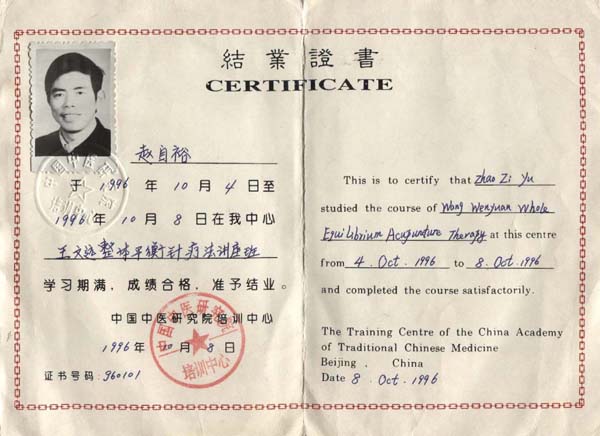 結業證書
CERTIFICATE
赵自裕
于 1996 年 10 月 4 日至
1996 年 10 月 8 日在我中心
王文远整体平衡针疗法讲座班
学习期满，成绩合格，准予结业。
中国中医研究院培训中心
1996年 10 月 8 日
证书号码：960101
中国中医研究院
培训中心
This is to certify that Zhao Zi Yu
studied the course of Wang Wenyuan Whole
Equilibrium Acupuncture Therapy at this centre
from 4. Oct. 1996 to 8. Oct. 1996
and completed the course satisfactorily.
The Training Centre of the China Academy
of Traditional Chinese Medicine
Beijing, China
Date 8. Oct. 1996